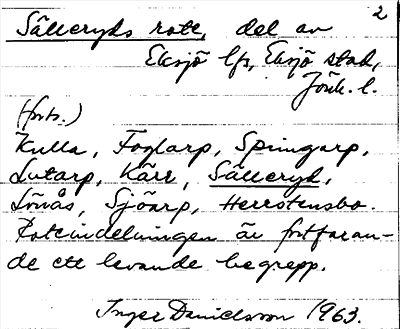 2
Sälleryds rote, del av
Eksjö lfs, Eksjö stad,
Jönk. l.
(forts.)
Kulla, Foglarp, Spingarp,
Lutarp, Kärr, Sälleryd,
Lövås, Sjöarp, Herrstensbo.
Roteindelningen är fortfaran-
de ett levande begrepp.
Inger Danielsson 1963.